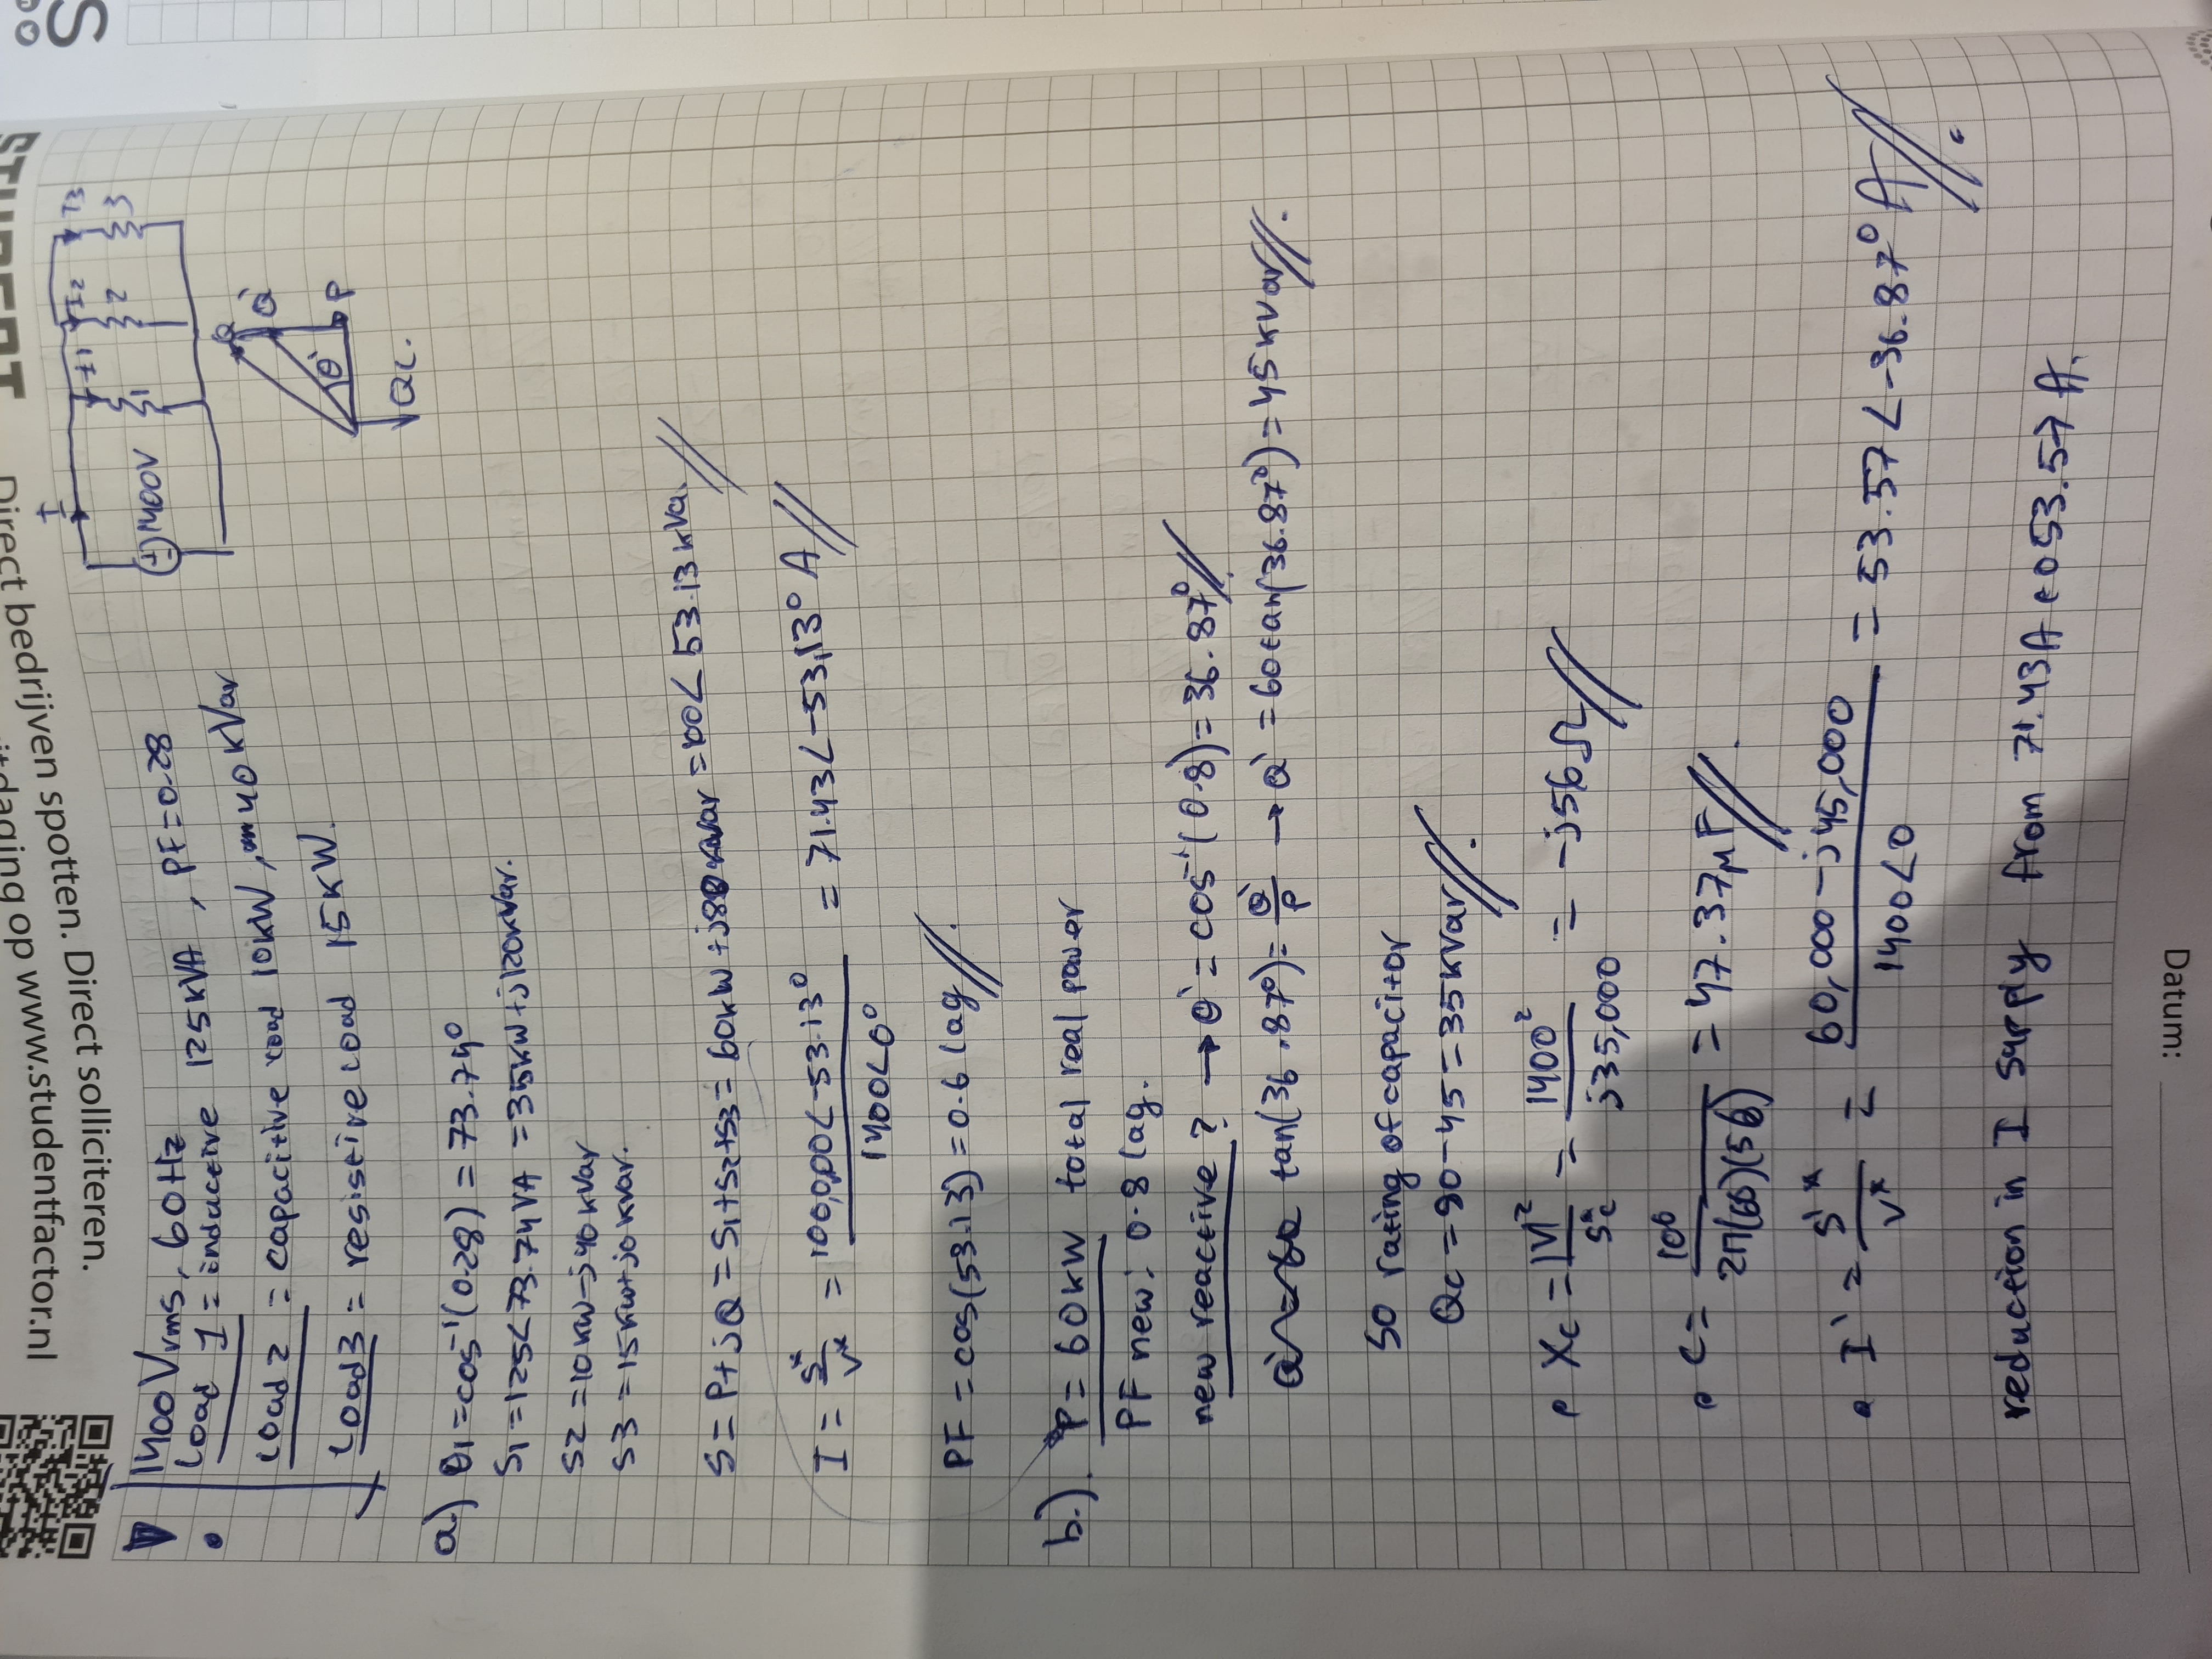 STUDENT
Direct bedrijven spotten. Direct solliciteren.
op www.studentfactor.nl
S
1400 Vrms, 60Hz
Load 1 = inductive 125kVA, PF=0.28
Load 2 = capacitive load 10kW, 40kVar
Load 3 = resistive load 15kW.
I
I1
I2
I3
1400V
1
2
3
Q
Q'
θ'
P
QC.
a.) θ1 = cos⁻¹(0.28) = 73.74°
S1 = 125<73.74 VA = 35kW+j120kVar.
S2 = 10kW-j40kVar
S3 = 15kW+j0kVar.
S = P+jQ = S1+S2+S3 = 60kW+j80kVar = 100<53.13 kVa.
I = S*/V* = 100,000<-53.13° / 1400<0° = 71.43<-53,13° A
PF = cos(53.13) = 0.6 lag.
b.). P = 60kW total real power
PF new: 0.8 lag.
new reactive? → θ' = cos⁻¹(0.8) = 36.87°
tan(36.87°) = Q'/P → Q' = 60tan(36.87°) = 45kVar.
SO rating of capacitor
Qc = 80-45 = 35kVar.
• Xc = |V|²/Sc* = 1400²/j35,000 = -j56Ω
• C = 10⁶/2π(60)(56) = 47.37μF.
• I' = S'*/V* = 60,000-j45,000 / 1400<0 = 53.57<-36.87° A.
reduction in I supply from 71.43A to 53.57A.
Datum: